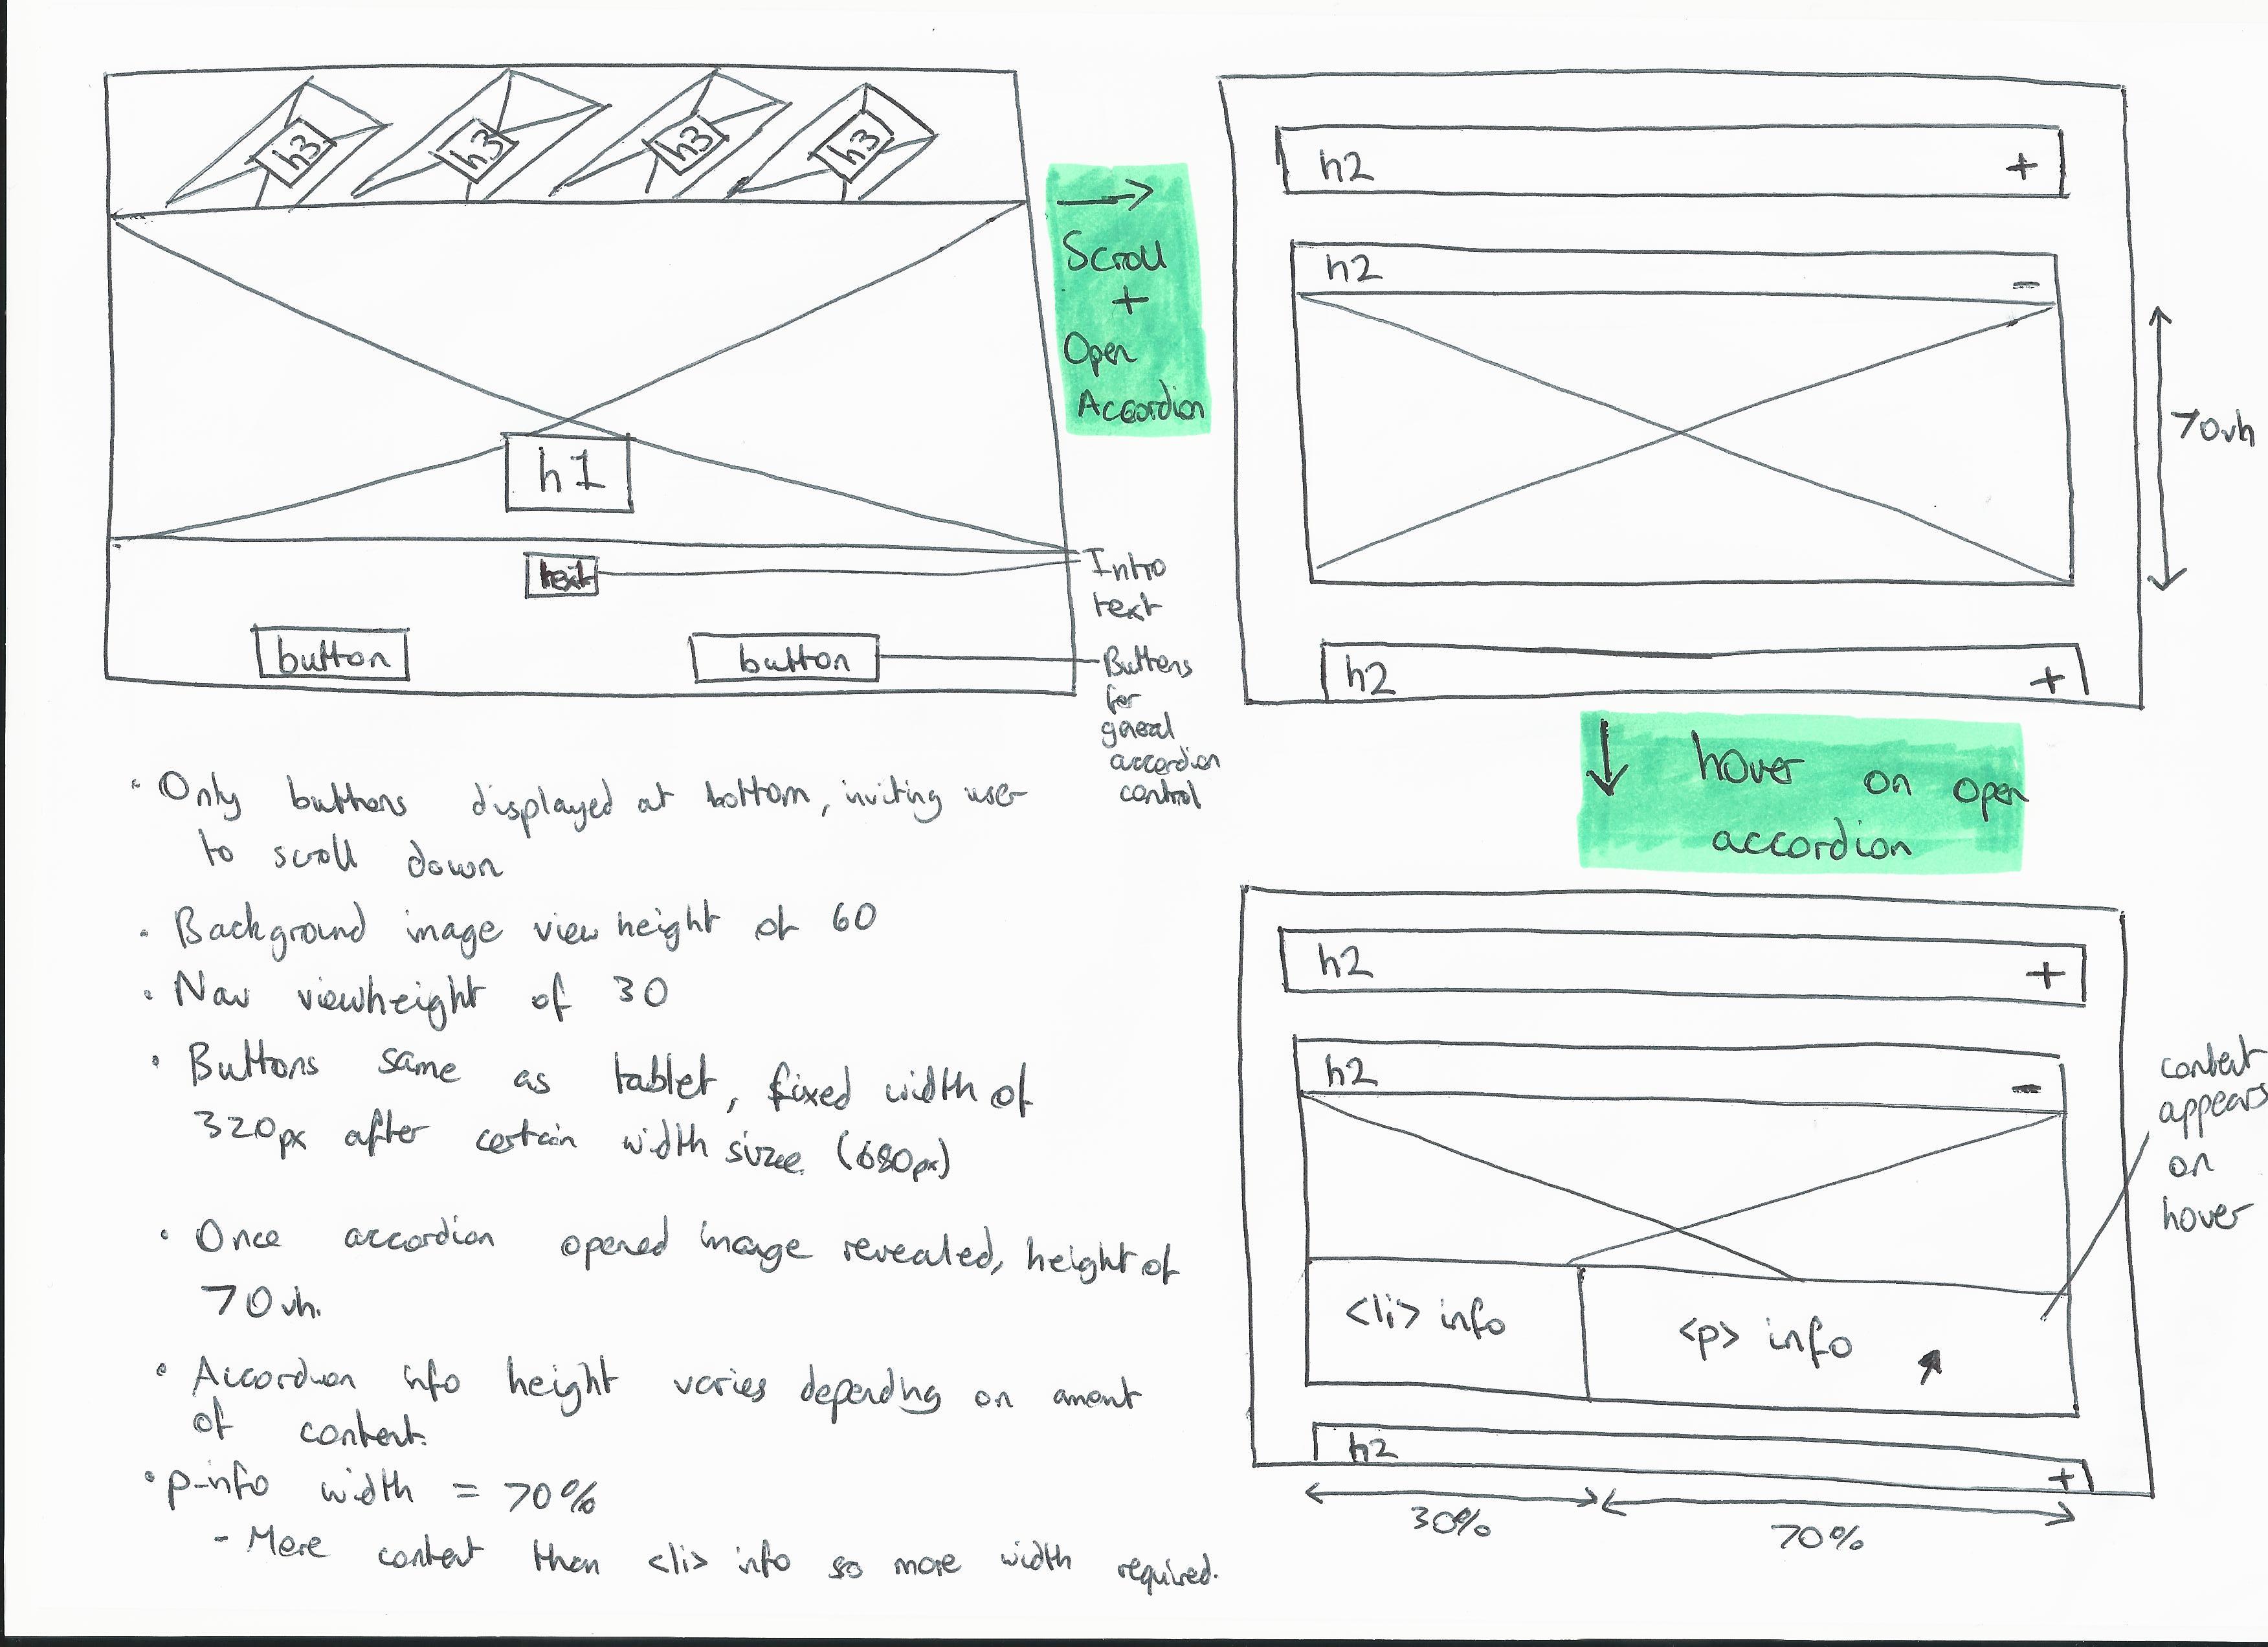 h3 h3 h3 h3
h1
text
button button
Intro
text
Buttons
for
general
accordion
control
→
Scroll
+
Open
Accordion
h2 +
h2 -
70vh
h2 +
↓ hover on open
accordion
h2 +
h2 -
<li> info <p> info
h2 +
30% 70%
content
appears
on
hover
• Only buttons displayed at bottom, inviting user
to scroll down
• Background image view height of 60
• Nav viewheight of 30
• Buttons same as tablet, fixed width of
320px after certain width size (680px)
• Once accordion opened image revealed, height of
70vh.
• Accordion info height varies depending on amount
of content.
• p-info width = 70%
- More content than <li> info so more width required.